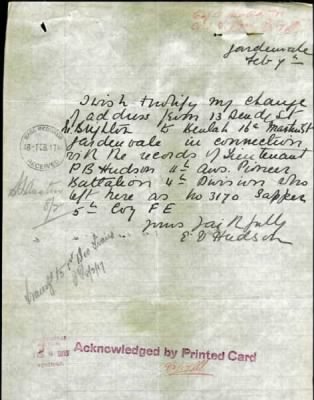 Gardenvale
Feb 7th
I wish to notify my change
of address from 13 Dendy St
Brighton to Beulah 16
Gardenvale in connection
with the records of Lieutenant
P B Hudson 4th Aus. Pioneer
Battalion 4th Division who
left here as No 3170 Sapper
5th Coy F E
Yours faithfully
E. V Hudson
BASE RECORDS
8-FEB.17
RECEIVED
Acknowledged by Printed Card